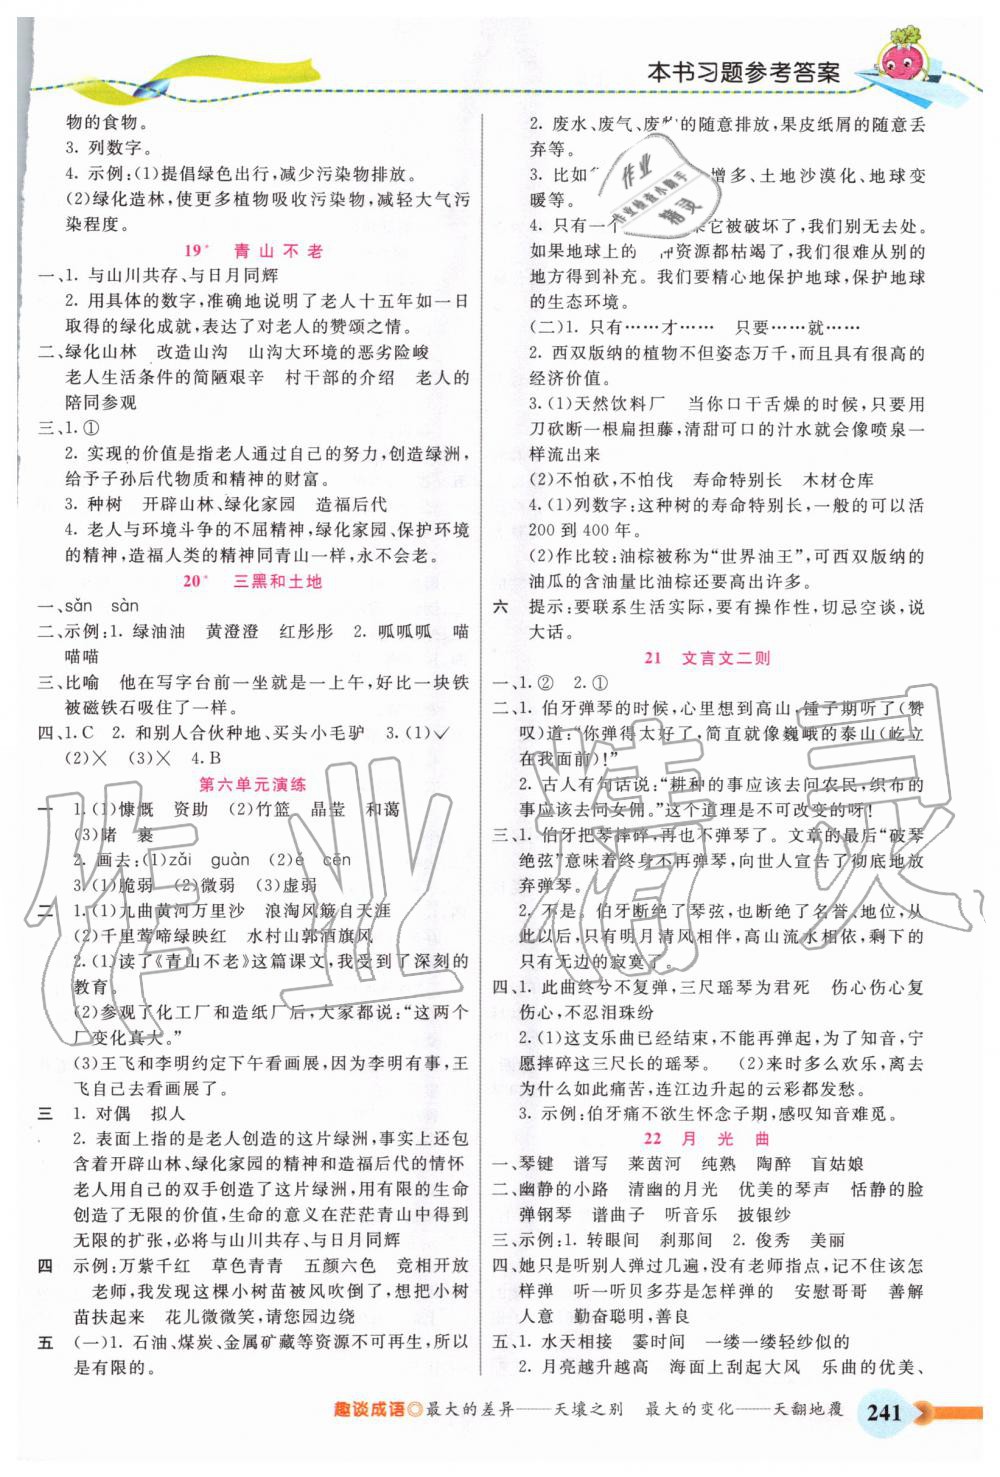 本书习题参考答案
物的食物。
3. 列数字。
4. 示例:(1)提倡绿色出行,减少污染物排放。
(2)绿化造林,使更多植物吸收污染物,减轻大气污
染程度。
19* 青山不老
一、1. 与山川共存、与日月同辉
2. 用具体的数字,准确地说明了老人十五年如一日
取得的绿化成就,表达了对老人的赞颂之情。
二、绿化山林 改造山沟 山沟大环境的恶劣险峻
老人生活条件的简陋艰辛 村干部的介绍 老人的
陪同参观
三、1. ①
2. 实现的价值是指老人通过自己的努力,创造绿洲,
给予子孙后代物质和精神的财富。
3. 种树 开辟山林、绿化家园 造福后代
4. 老人与环境斗争的不屈精神,绿化家园、保护环境
的精神,造福人类的精神同青山一样,永不会老。
20* 三黑和土地
一、sǎn sàn
二、示例:1. 绿油油 黄澄澄 红彤彤 2. 呱呱呱 喵
喵喵
三、比喻 他在写字台前一坐就是一上午,好比一块铁
被磁铁石吸住了一样。
四、1. C 2. 和别人合伙种地、买头小毛驴 3. (1)✓
(2)× (3)× 4. B
第六单元演练
一 1. (1)慷慨 资助 (2)竹篮 晶莹 和蔼
(3)睹 裹
2. 画去:(1)zǎi guàn (2)é cēn
3. (1)脆弱 (2)微弱 (3)虚弱
二 1. (1)九曲黄河万里沙 浪淘风簸自天涯
(2)千里莺啼绿映红 水村山郭酒旗风
2. (1)读了《青山不老》这篇课文,我受到了深刻的
教育。
(2)参观了化工厂和造纸厂后,大家都说:“这两个
厂变化真大。”
(3)王飞和李明约定下午看画展,因为李明有事,王
飞自己去看画展了。
三 1. 对偶 拟人
2. 表面上指的是老人创造的这片绿洲,事实上还包
含着开辟山林、绿化家园的精神和造福后代的情怀
老人用自己的双手创造了这片绿洲,用有限的生命
创造了无限的价值,生命的意义在茫茫青山中得到
无限的扩张,必将与山川共存、与日月同辉
四 示例:万紫千红 草色青青 五颜六色 竞相开放
老师,我发现这棵小树苗被风吹倒了,我把小树
苗扶起来 花儿微微笑,请您园边绕
五 (一)1. 石油、煤炭、金属矿藏等资源不可再生,所以
是有限的。
2. 废水、废气、废物的随意排放,果皮纸屑的随意丢
弃等。
3. 比如 增多、土地沙漠化、地球变
暖等。
4. 只有一个 它被破坏了,我们别无去处。
如果地球上的 资源都枯竭了,我们很难从别的
地方得到补充。我们要精心地保护地球,保护地球
的生态环境。
(二)1. 只有……才…… 只要……就……
2. 西双版纳的植物不但姿态万千,而且有很高的
经济价值。
3. (1)天然饮料厂 当你口干舌燥的时候,只要用
刀砍断一根扁担藤,清甜可口的汁水就会像喷泉一
样流出来
(2)不怕砍,不怕伐 寿命特别长 木材仓库
4. (1)列数字:这种树的寿命特别长,一般的可以活
200 到 400 年。
(2)作比较:油棕被称为“世界油王”,可西双版纳的
油瓜的含油量比油棕还要高出许多。
六 提示:要联系生活实际,要有操作性,切忌空谈,说
大话。
21 文言文二则
一、1. ② 2. ①
二、1. 伯牙弹琴的时候,心里想到高山,锺子期听了(赞
叹)道:“你弹得太好了,简直就像巍峨的泰山(屹立
在我面前)!”
2. 古人有句话说:“耕种的事应该去问农民,织布的
事应该去问女佣。”这个道理是不可改变的呀!
三、1. 伯牙把琴摔碎,再也不弹琴。文章的最后“破琴
绝弦”意味着终身不再弹琴,向世人宣告了彻底地放
弃弹琴。
2. 不是。伯牙断绝了琴弦,也断绝了名誉、地位,从
此以后,只有明月清风相伴,高山流水相依,剩下的
只有无边的寂寞了。
四、1. 此曲终兮不复弹,三尺瑶琴为君死 伤心伤心复
伤心,不忍泪珠纷
2. (1)这支乐曲已经结束,不能再弹起,为悼念知音,宁
愿摔碎这三尺长的瑶琴。 (2)来时多么欢乐,离去
为什么如此痛苦,连江边升起的云彩都发愁。
3. 示例:伯牙痛不欲生怀念子期,感叹知音难觅。
22 月光曲
一、琴键 谱写 莱茵河 纯熟 陶醉 盲姑娘
二、幽静的小路 清幽的月光 优美的琴声 恬静的脸
弹钢琴 谱曲子 听音乐 披银纱
三、示例:1. 转眼间 刹那间 2. 俊秀 美丽
四、她只是听别人弹过几遍,没有老师指点,记不住怎
样弹 听一听贝多芬是怎样弹的 安慰哥哥 善解
人意 勤奋聪明,善良
五、1. 水天相接 霎时间 一缕一缕轻纱似的
2. 月亮越升越高 海面上刮起大风 乐曲的优美、
趣谈成语◎最大的差异——天壤之别 最大的变化——天翻地覆
241
作业精灵
作业
作业检查小助手
精灵